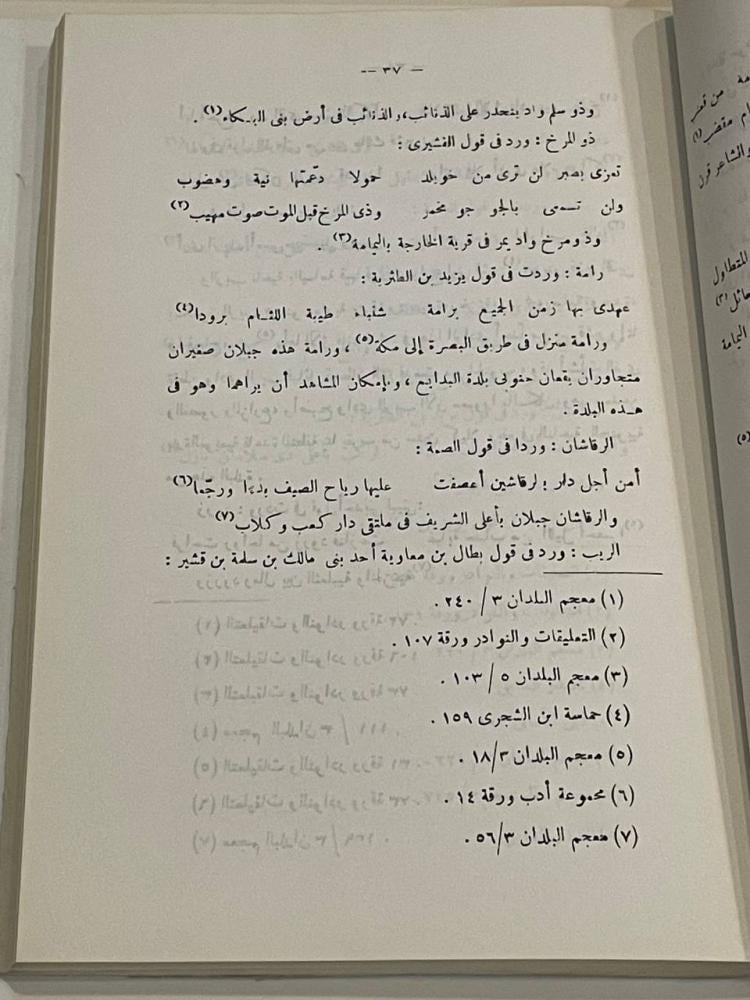 — ٣٧ —
وذو سلم واد ينحدر على الذنائب، والذنائب فى أرض بنى البكاء(١) .
ذو المرخ : ورد فى قول القشيرى :
تعزى بصبر لن ترى من خويلد حمولا دعمتها نية وهضوب
ولن تسمعى بالجو جو مخمر وذى المرخ قبل الموت صوت مهيب(٢)
وذو مرخ واد يمر فى قرية الخارجة باليمامة(٣) .
رامة : وردت فى قول يزيد بن الطثرية :
عهدى بها زمن الجميع برامة شنباء طيبة اللثام برودا(٤)
ورامة منزل فى طريق البصرة إلى مكة(٥) ، ورامة هذه جبلان صغيران
متجاوران يقعان جنوبى بلدة البدايع ، وبإمكان المشاهد أن يراهما وهو فى
هذه البلدة .
الرقاشان : وردا فى قول الصمة :
أمن أجل دار بالرقاشين أعصفت عليها رياح الصيف بدءا ورجعا(٦)
والرقاشان جبلان بأعلى الشريف فى ملتقى دار كعب وكلاب(٧)
الريب : ورد فى قول بطال بن معاوية أحد بنى مالك بن سلمة بن قشير :
(١) معجم البلدان ٣ / ٢٤٠ .
(٢) التعليقات والنوادر ورقة ١٠٧ .
(٣) معجم البلدان ٥ / ١٠٣ .
(٤) حماسة ابن الشجرى ١٥٩ .
(٥) معجم البلدان ١٨/٣ .
(٦) مجموعة أدب ورقة ١٤ .
(٧) معجم البلدان ٥٦/٣ .
مة من قعنب
ام مقضب(١)
والشاعر قرل
المتطاول
حائل(٣)
اليمامة
(٥)